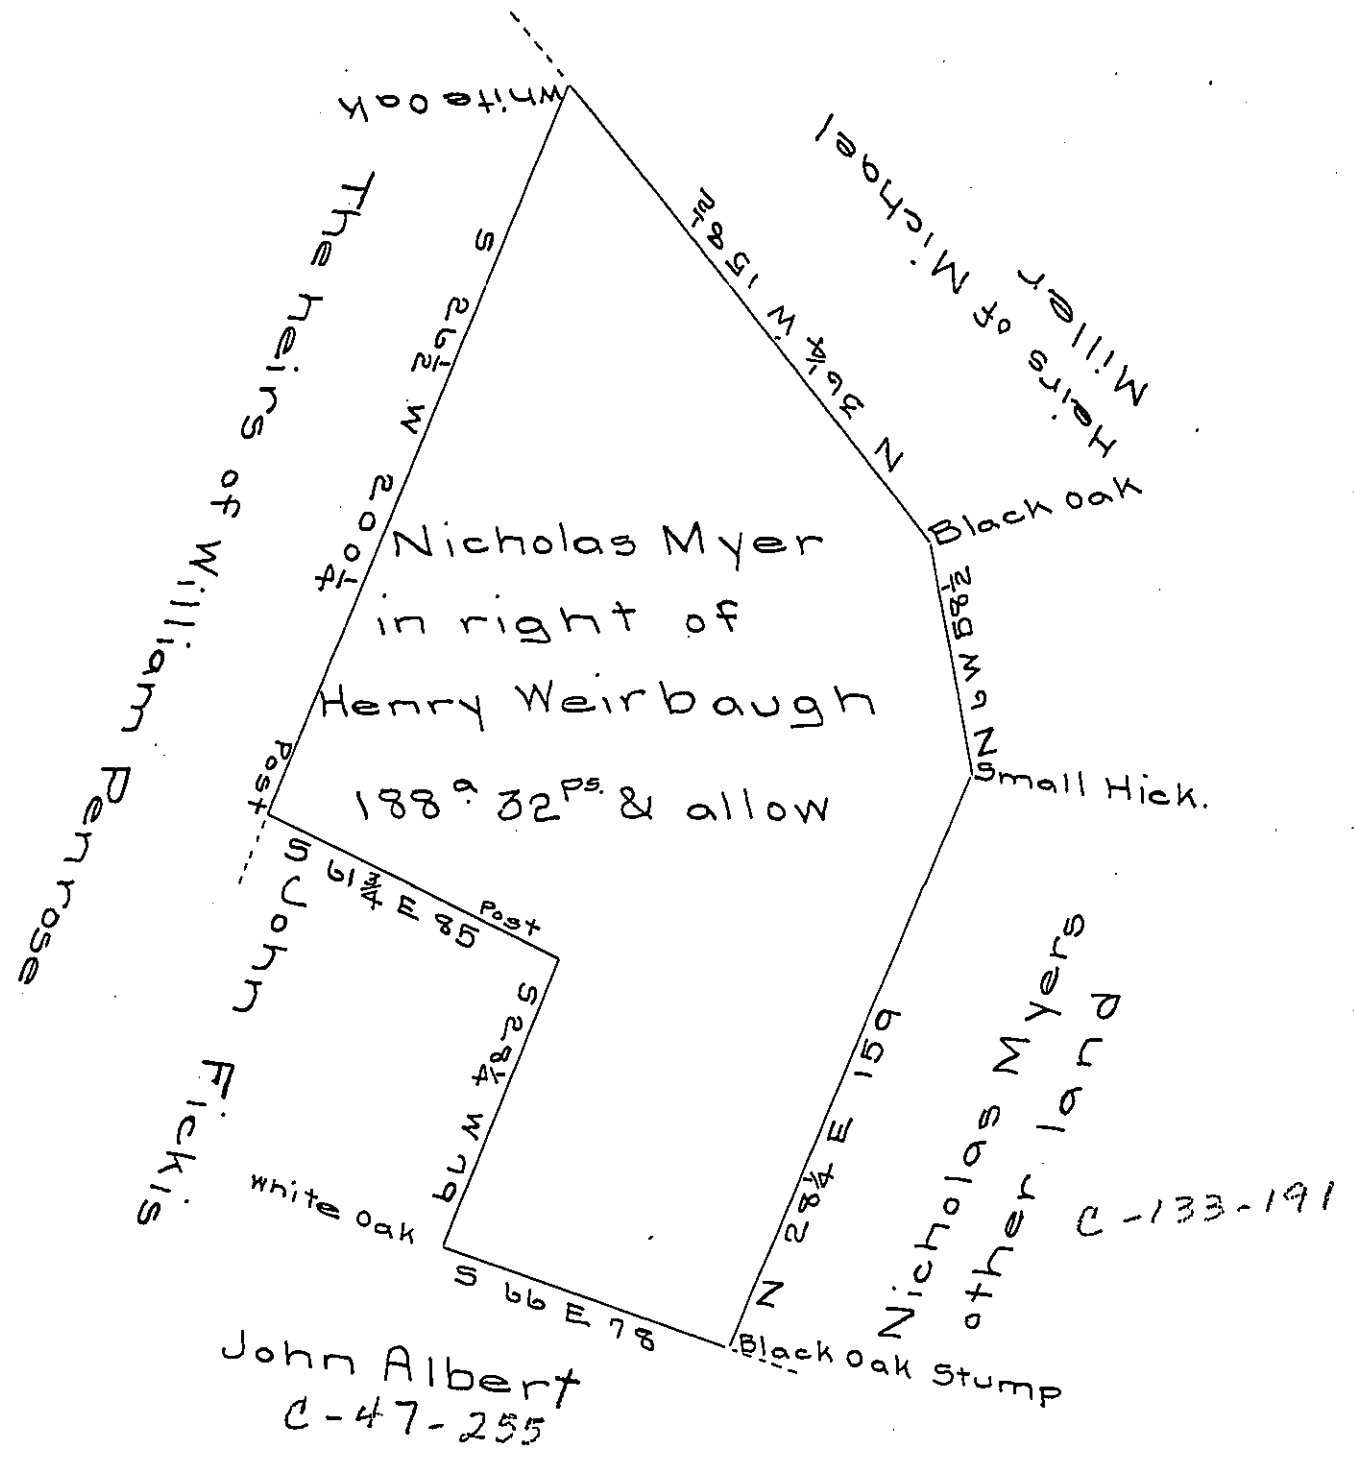 White Oak
The heirs of William Penrose
S 26½ W 200¼
N 36¼ W 158½
Heirs of Michael
Miller
Black oak
N 9 W 58½
Small Hick.
Nicholas Myer
in right of
Henry Weirbaugh
188a. 32ps. & allow
Post
S 61¾ E 85
Post
S 28¼ W 79
John Fickis
White Oak
S 66 E 78
N 28¼ E 159
Nicholas Myers
other land
C-133-191
Black Oak Stump
John Albert
C-47-255